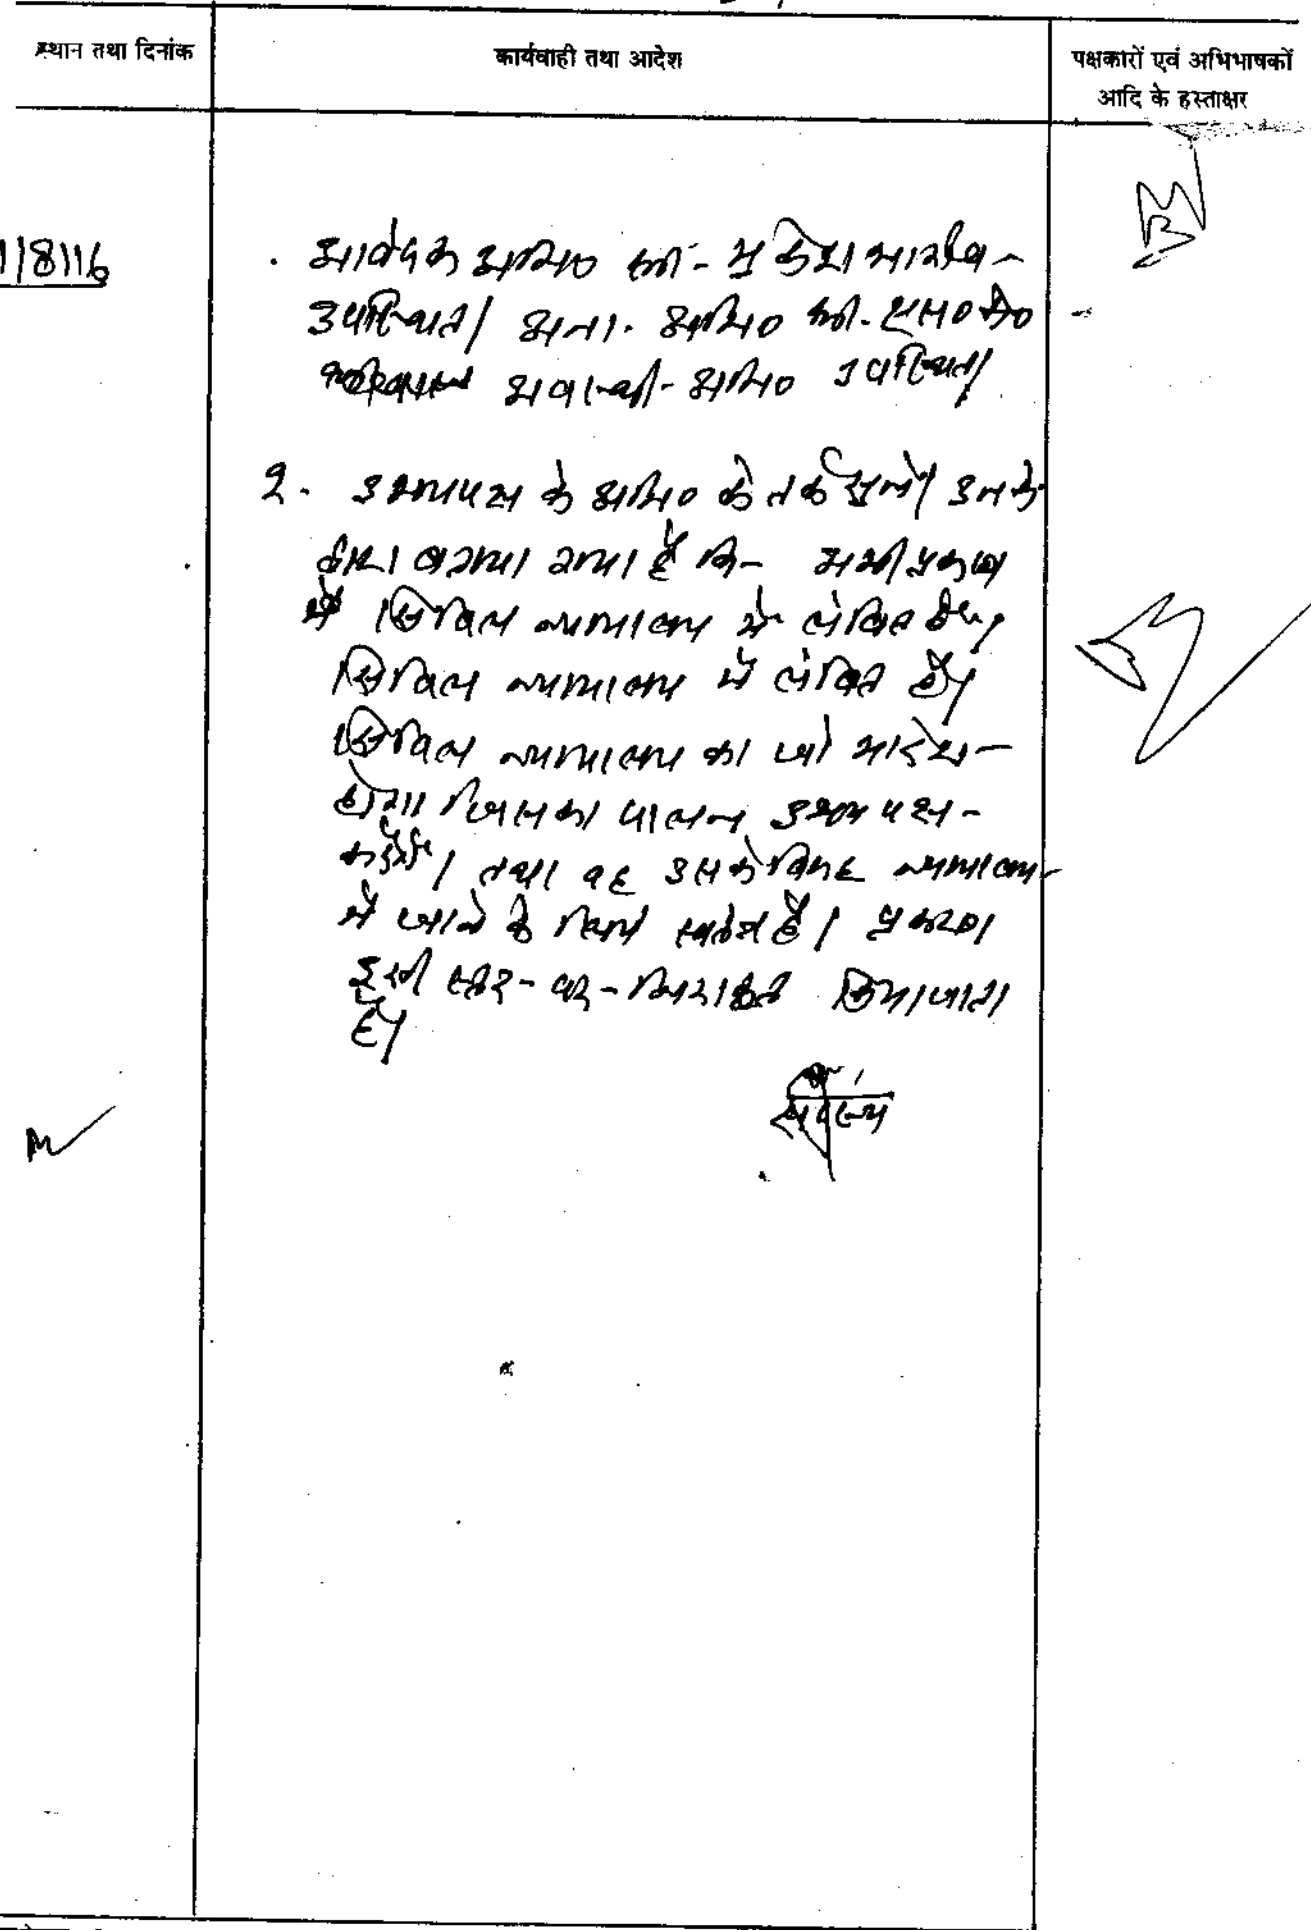 स्थान तथा दिनांक
कार्यवाही तथा आदेश
पक्षकारों एवं अभिभाषकों
आदि के हस्ताक्षर
1/8/16
आवेदक अभि० श्री - मुकेश भार्गव -
उपस्थित। अना. अभि० श्री. एस० के०
अवस्थी - अभि० उपस्थित।
2. उभयपक्ष के अभि० के तर्क सुने। उनके
द्वारा बताया गया है कि - अभी प्रकरण
में सिविल न्यायालय में लंबित है।
सिविल न्यायालय में लंबित है।
सिविल न्यायालय का जो आदेश -
होगा जिसका पालन उभय पक्ष -
करेंगे। तथा वह उसके विरूद्ध न्यायालय -
में जाने के लिये स्वतंत्र है। प्रकरण
इसी स्तर - पर - निराकृत किया जाता
है।